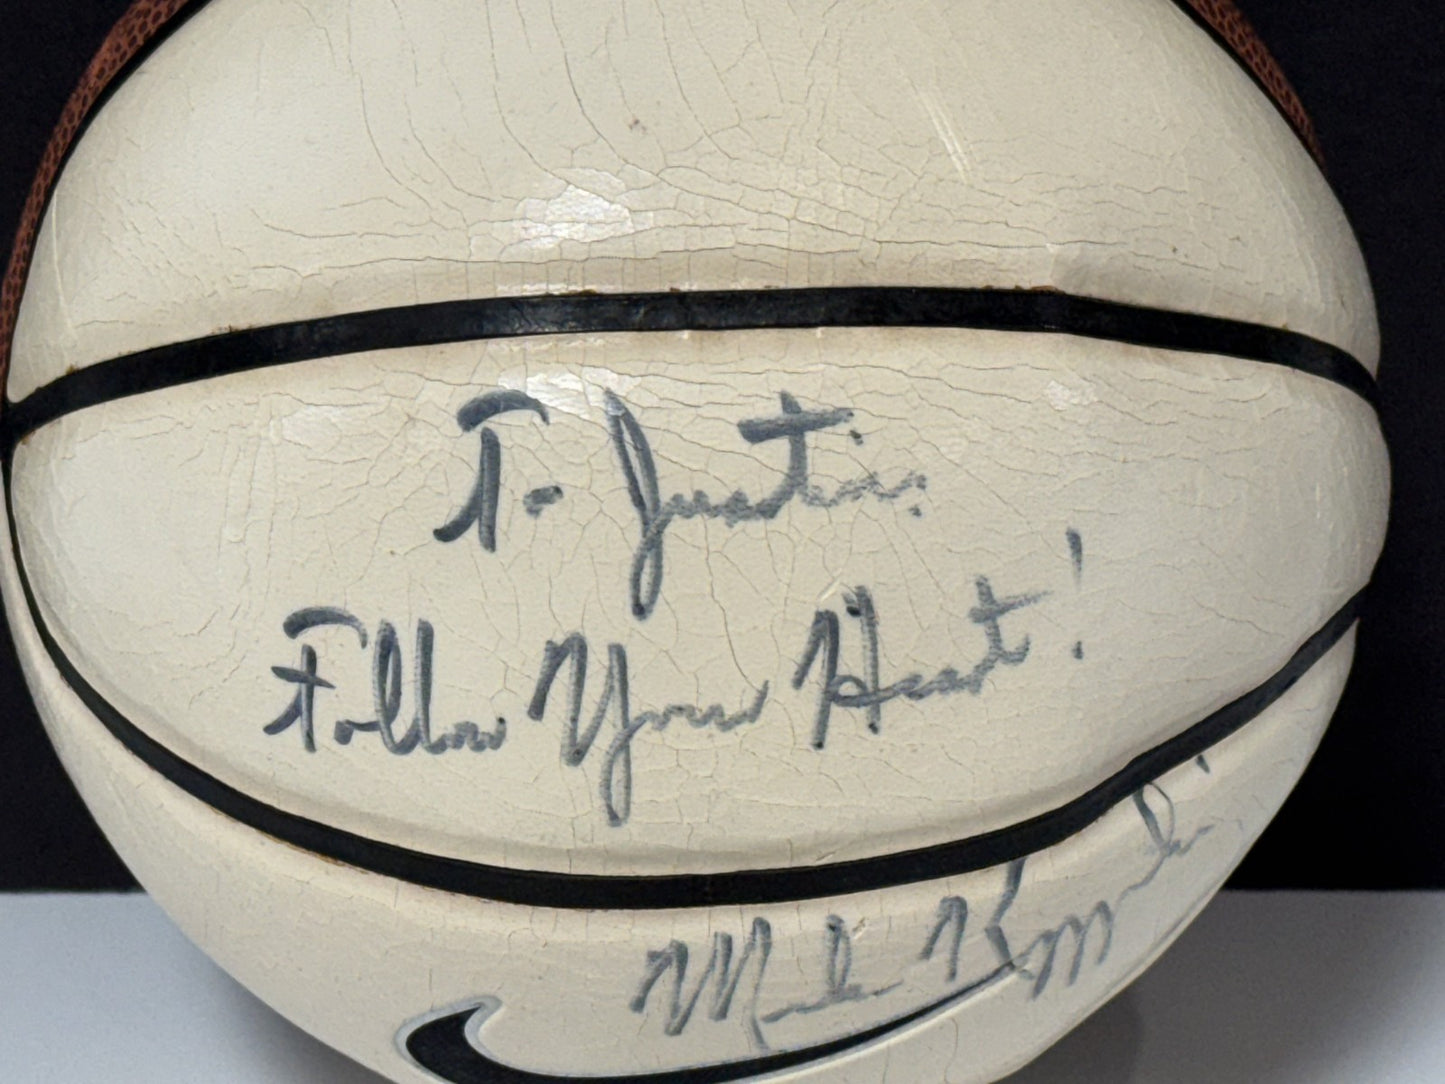 To Justin:
Follow Your Heart!
Mike